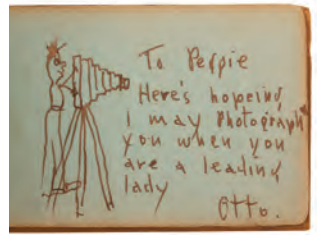 To Perpie
Here's hopeing
I may Photograph
you when you
are a leading
lady
Otto.